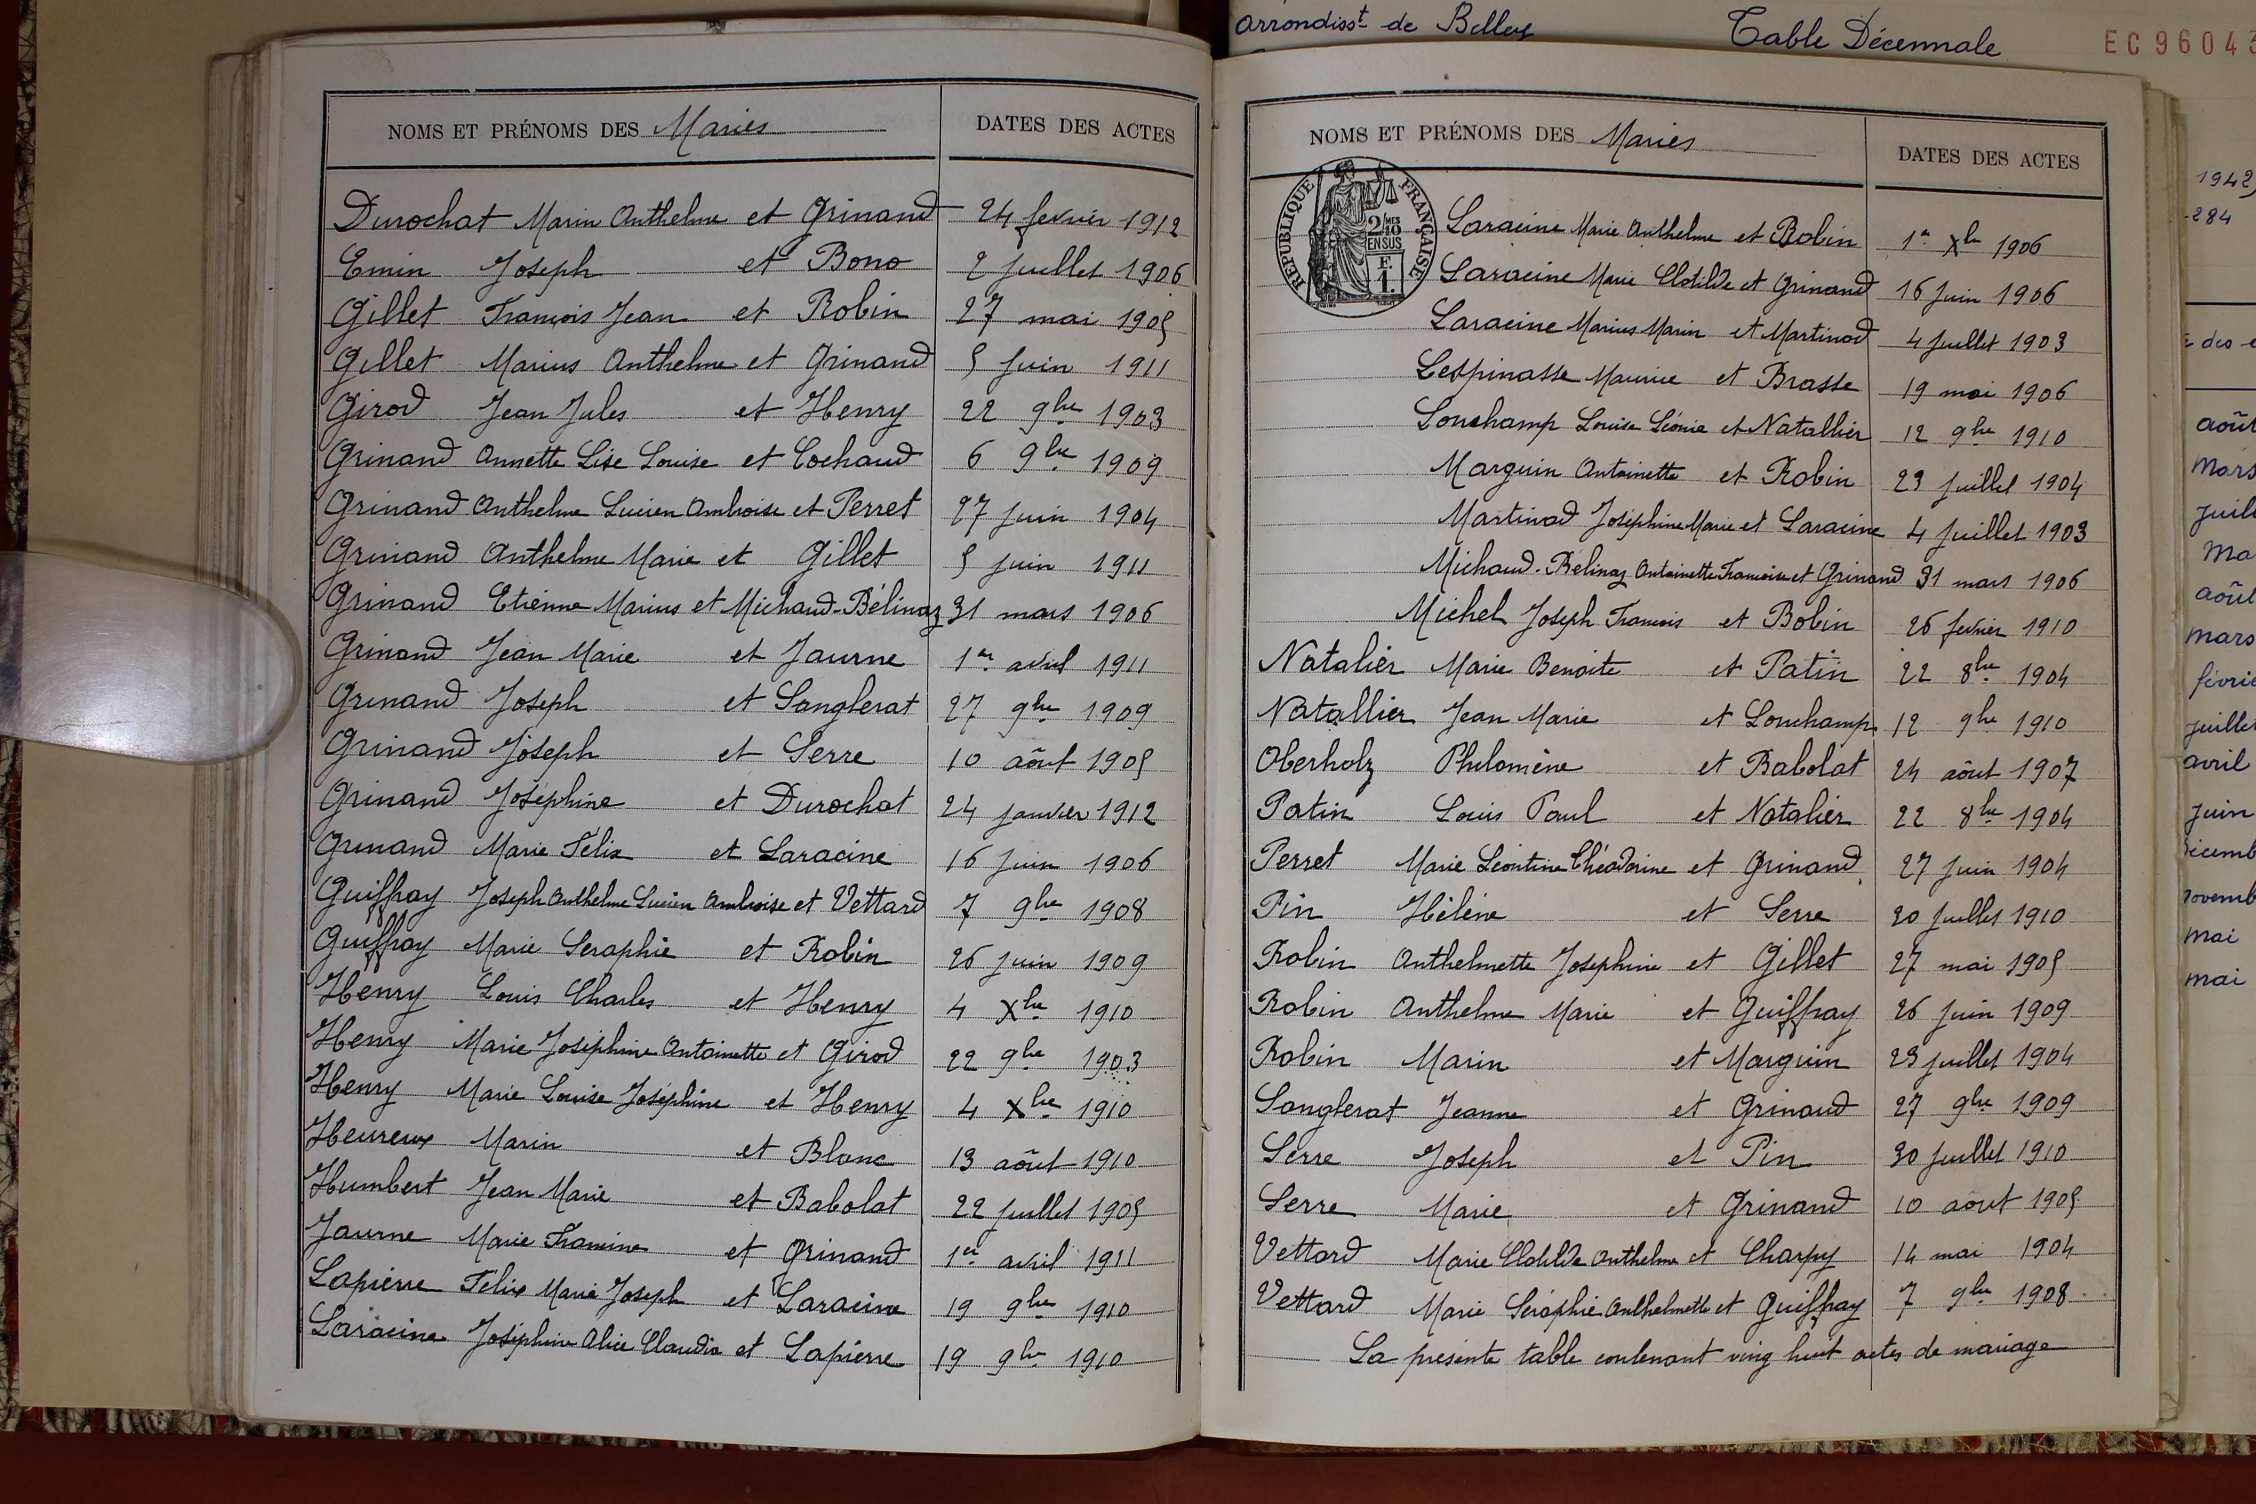 arrondisst de Belley
Table Décennale
EC96043
NOMS ET PRÉNOMS DES Mariés
DATES DES ACTES
Durochat Marin Anthelme et Grinand 24 fevrier 1912
Emin Joseph et Bono 2 juillet 1906
Gillet François Jean et Robin 27 mai 1905
Gillet Marius Anthelme et Grinand 5 juin 1911
Girod Jean Jules et Henry 22 9bre 1903
Grinand Annette Lise Louise et Cochaud 6 9bre 1909
Grinand Anthelme Lucien Ambroise et Perret 27 juin 1904
Grinand Anthelme Marie et Gillet 5 juin 1911
Grinand Etienne Marius et Michaud-Bélinaz 31 mars 1906
Grinand Jean Marie et Jaurne 1er avril 1911
Grinand Joseph et Sanglerat 27 9bre 1909
Grinand Joseph et Serre 10 aôut 1905
Grinand Joséphine et Durochat 24 janvier 1912
Grinand Marie Felix et Laracine 16 juin 1906
Guiffray Joseph Anthelme Lucien Ambroise et Vettard 7 9bre 1908
Guiffray Marie Seraphie et Robin 26 juin 1909
Henry Louis Charles et Henry 4 Xbre 1910
Henry Marie Joséphine Antoinette et Girod 22 9bre 1903
Henry Marie Louise Joséphine et Henry 4 Xbre 1910
Heureux Marin et Blanc 13 aôut 1910
Humbert Jean Marie et Babolat 22 juillet 1905
Jaurne Marie Framine et Grinand 1er avril 1911
Lapierre Felix Marie Joseph et Laracine 19 9bre 1910
Laracine Joséphine Alice Claudia et Lapierre 19 9bre 1910
NOMS ET PRÉNOMS DES Mariés
DATES DES ACTES
RÉPUBLIQUE FRANÇAISE
2/10MES
EN SUS
F.
1.
Laracine Marie Anthelme et Robin 1er Xbre 1906
Laracine Marie Clotilde et Grinand 16 juin 1906
Laracine Marius Marin et Martinod 4 juillet 1903
Lespinasse Maurice et Brasse 19 mai 1906
Louchamp Louise Léonie et Natallier 12 9bre 1910
Marguin Antoinette et Robin 23 juillet 1904
Martinod Joséphine Marie et Laracine 4 juillet 1903
Michaud-Bélinaz Antoinette Françoise et Grinand 31 mars 1906
Michel Joseph François et Bobin 26 fevrier 1910
Natalier Marie Benoite et Patin 22 8bre 1904
Natallier Jean Marie et Louchamp 12 9bre 1910
Oberholz Philomène et Babolat 24 aôut 1907
Patin Louis Paul et Natalier 22 8bre 1904
Perret Marie Léontine Théodorine et Grinand 27 juin 1904
Pin Hélène et Serre 30 juillet 1910
Robin Anthelmette Josephine et Gillet 27 mai 1905
Robin Anthelme Marie et Guiffray 26 juin 1909
Robin Marin et Marguin 23 juillet 1904
Sanglerat Jeanne et Grinand 27 9bre 1909
Serre Joseph et Pin 30 juillet 1910
Serre Marie et Grinand 10 aout 1905
Vettard Marie Clotilde Anthelme et Charpy 14 mai 1904
Vettard Marie Séraphie Anthelmette et Guiffray 7 9bre 1908
La présente table contenant ving huit actes de mariage
1942,
284
des
août
mars
juil
ma
août
mars
févrie
juillet
avril
juin
décemb
novemb
mai
mai